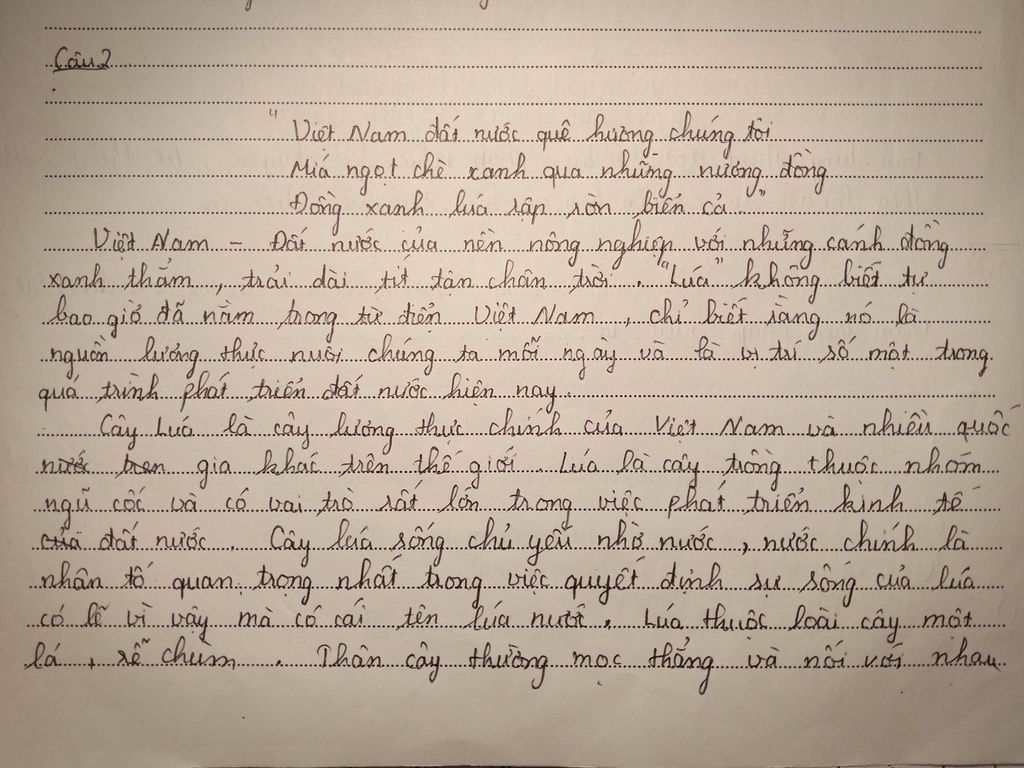 Câu 2
" Việt Nam đất nước quê hương chúng tôi
Miá ngọt chè xanh qua những nương đồng
Đồng xanh lúa rập rờn biển cả. "
Việt Nam – Đất nước của nền nông nghiệp với những cánh đồng
xanh thẳm, trải dài tít tận chân trời. "Lúa" không biết tự
bao giờ đã nằm trong từ điển Việt Nam, chỉ biết rằng nó là
nguồn lương thực nuôi chúng ta mỗi ngày và là vị trí số một trong
quá trình phát triển đất nước hiện nay.
Cây Lúa là cây lương thực chính của Việt Nam và nhiều quốc
nước tren gia khác trên thế giới. Lúa là cây trồng thuộc nhóm
ngũ cốc và có vai trò rất lớn trong việc phát triển kinh tế
của đất nước. Cây lúa sống chủ yếu nhờ nước, nước chính là
nhân tố quan trọng nhất trong việc quyết định sự sống của lúa
có lẽ vì vậy mà có cái tên lúa nước. Lúa thuộc loài cây một
lá, rễ chùm. Thân cây thường mọc thẳng và nối với nhau